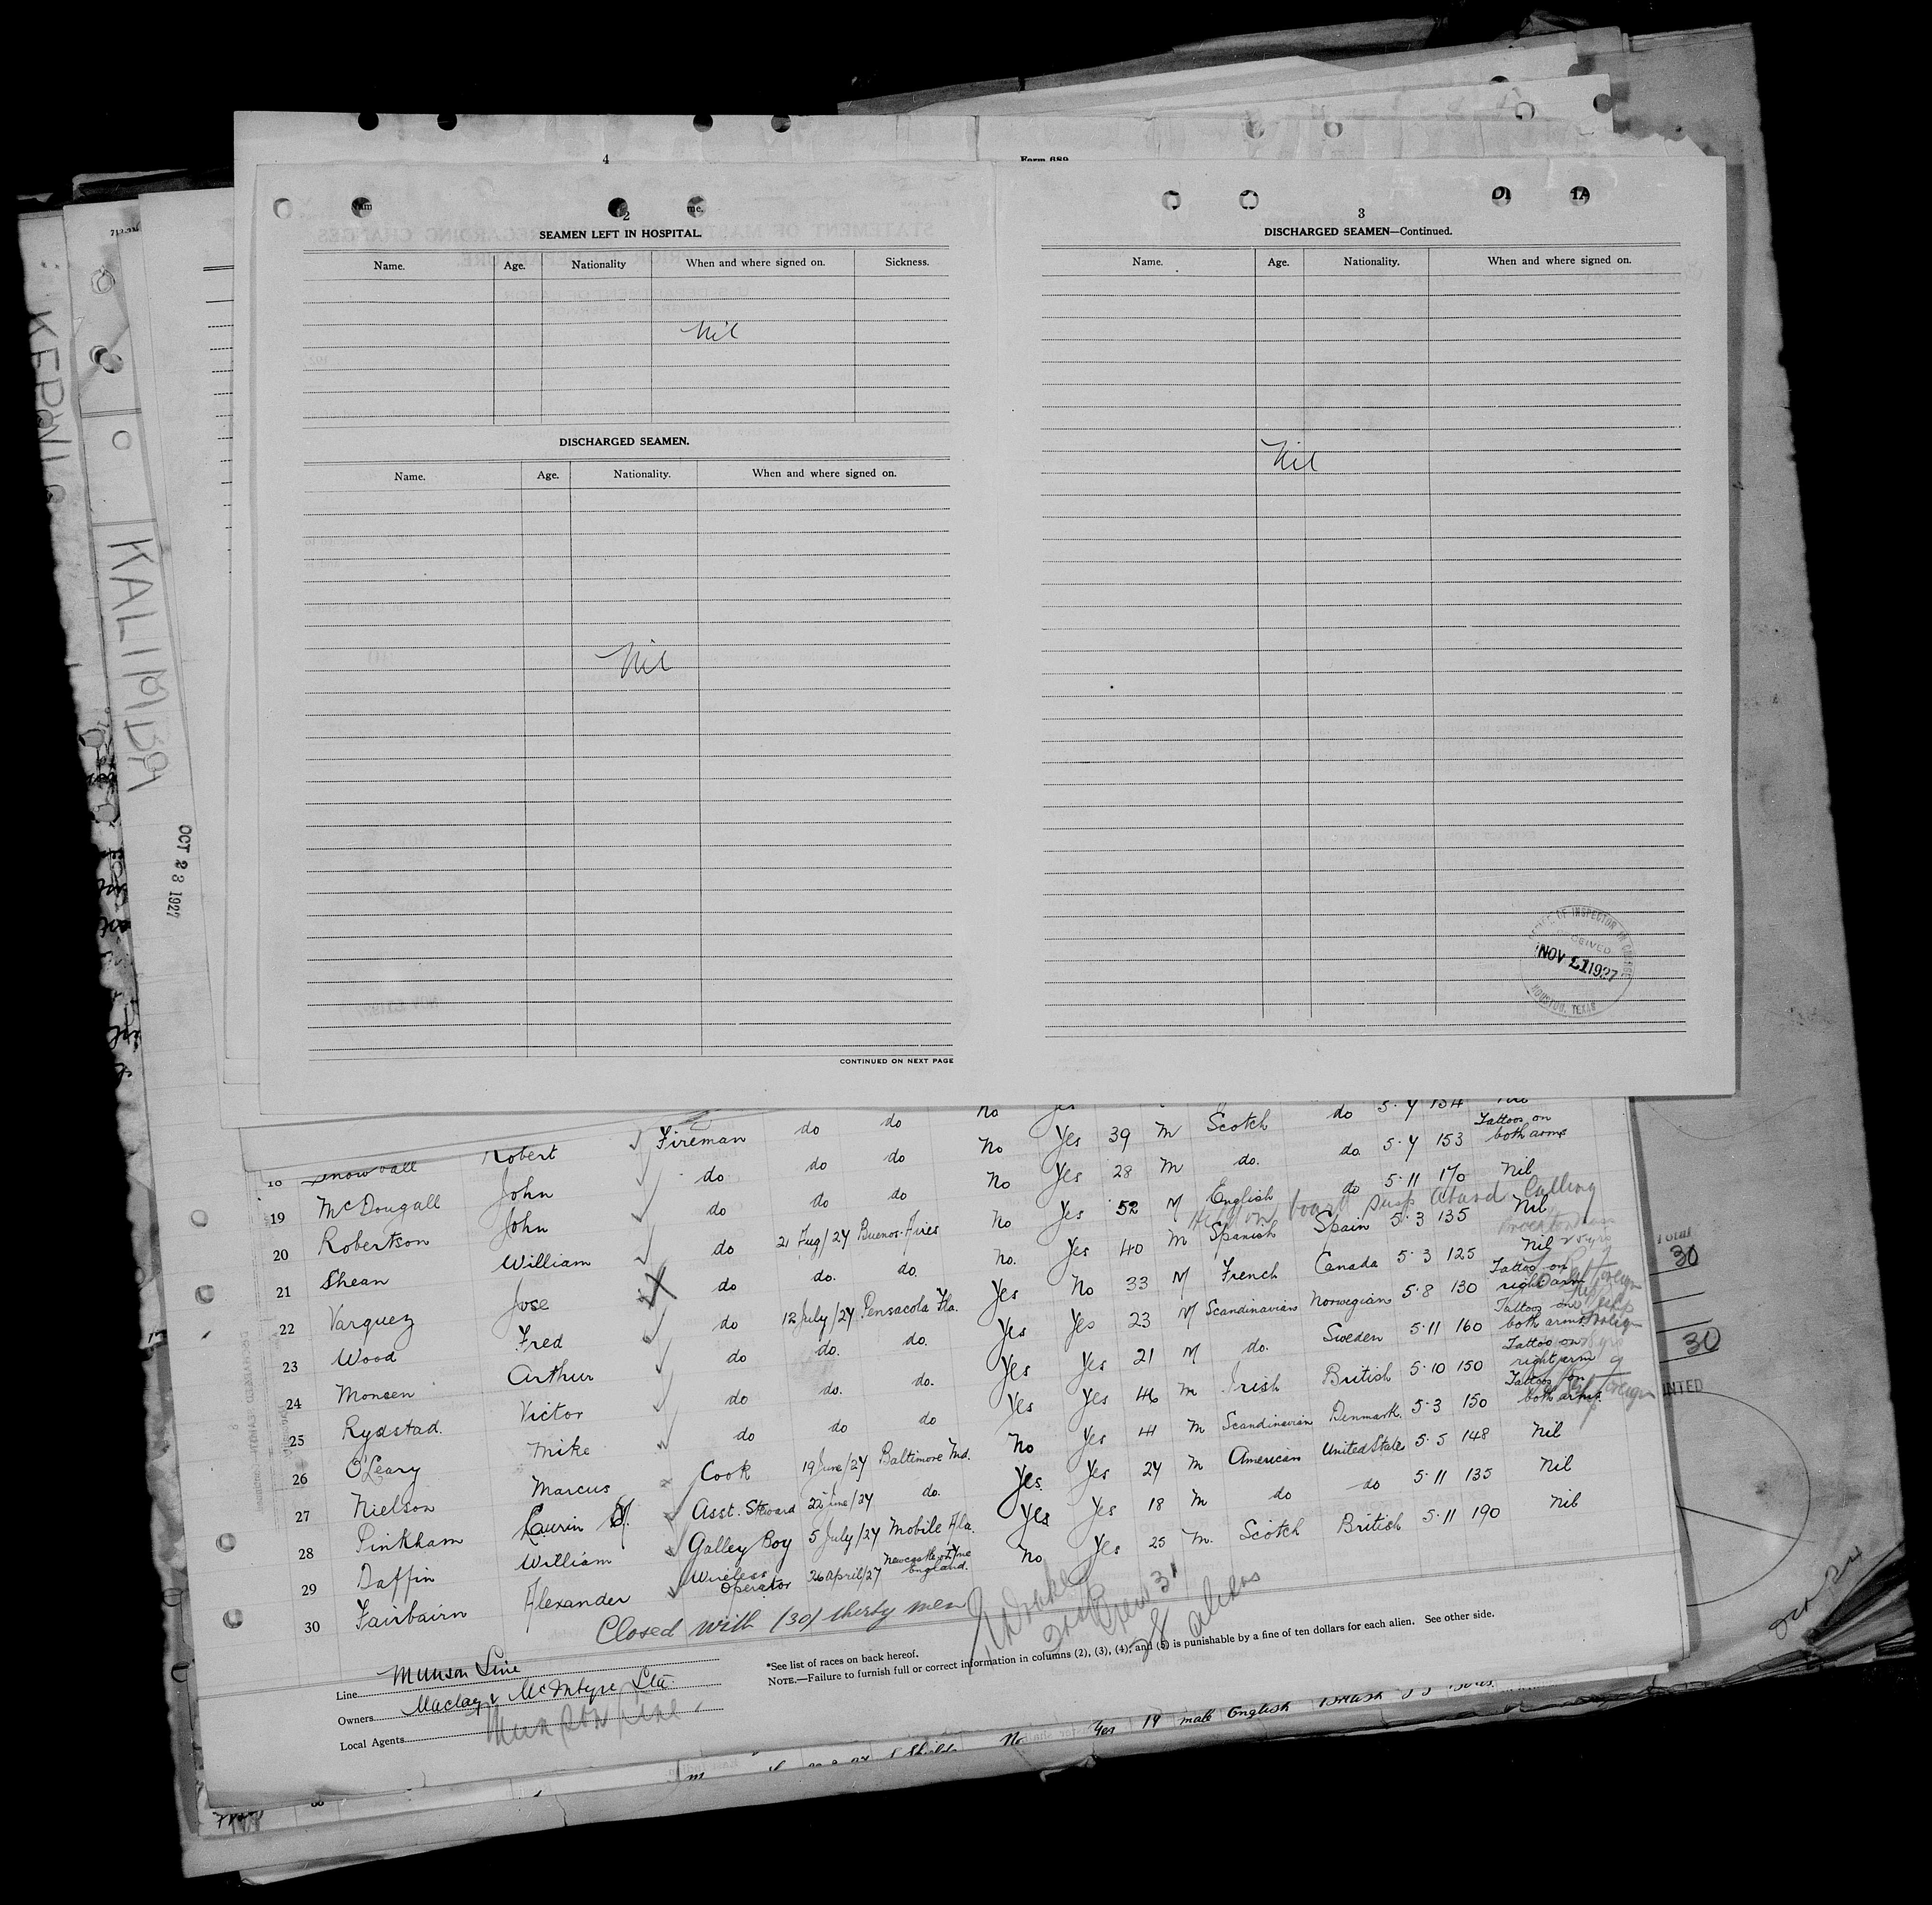 4
Form 689
2
SEAMEN LEFT IN HOSPITAL.
Name. Age. Nationality When and where signed on. Sickness.
Nil
DISCHARGED SEAMEN.
Name. Age. Nationality. When and where signed on.
Nil
CONTINUED ON NEXT PAGE
3
DISCHARGED SEAMEN—Continued.
Name. Age. Nationality. When and where signed on.
Nil
OFFICE OF INSPECTOR IN CHARGE
RECEIVED
NOV 21 1927
HOUSTON, TEXAS
KALIMBA
OCT 28 1927
No Yes do 5·7 154
18 Snowball Robert Fireman do do No Yes 39 M Scotch do 5·7 153 Tattoos on both arms
19 McDougall John do do do No Yes 28 M do. do 5·11 170 Nil
20 Robertson John do do do No Yes 52 M English Nil
21 Shean William do 21 Aug/27 Buenos Aires No. Yes 40 M Spanish Spain 5·3 135 Nil
22 Varquez Jose do do. do. Yes No 33 M French Canada 5·3 125 Tattoo on right arm
23 Wood Fred do 12 July/27 Pensacola Fla. Yes Yes 23 M Scandinavian Norwegian 5·8 130 Tattoos on both arms
24 Monsen Arthur do do. do. Yes Yes 21 M do. Sweden 5·11 160 Tattoo on right arm
25 Rydstad. Victor do do. do. Yes Yes 46 M Irish British 5·10 150 Tattoos on both arms.
26 O'Leary Mike do do do No Yes 41 M Scandinavian Denmark. 5·3 150 Nil
27 Nielson Marcus Cook 19 June/27 Baltimore Md. Yes. Yes 24 M American United State 5·5 148 Nil
28 Pinkham Laurin Asst. Steward 22 June/27 do. Yes Yes 18 M do do 5·11 135 Nil
29 Daffin William Galley Boy 5 July/27 Mobile Ala. No Yes 25 M. Scotch British 5·11 190 Nil
30 Fairbairn Alexander Wireless Operator 26 April/27 Newcastle on Tyne England.
Closed with (30) thirty men
Crew 31
28 aliens
*See list of races on back hereof.
NOTE.—Failure to furnish full or correct information in columns (2), (3), (4), and (5) is punishable by a fine of ten dollars for each alien. See other side.
Line Munson Line
Owners Maclay & McIntyre Ltd.
Local Agents Munson Line
Total
30
30
No Yes 19 male English British